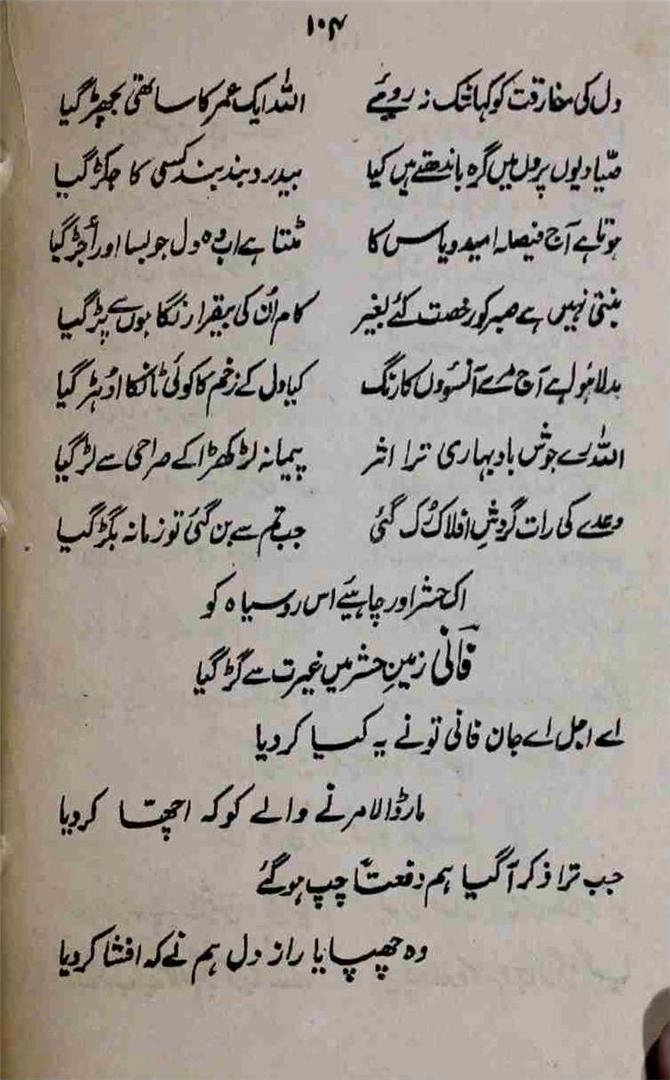 ۱۰۴
دل کی مفارقت کو کہاں تک نہ رویئے اللہ ایک عمر کا ساتھی بچھڑ گیا
صیّاد یوں پر دل میں گرہ باندھتے ہیں کیا بیدرد بند بند کسی کا جکڑ گیا
ہوتا ہے آج فیصلہ امید و یاس کا مٹتا ہے اب وہ دل جو بسا اور اُجڑ گیا
بنتی نہیں ہے صبر کو رخصت کئے بغیر کام اُن کی بیقرار نگاہوں سے پڑ گیا
بدلا ہوا ہے آج مرے آنسوؤں کا رنگ کیا دل کے زخم کا کوئی ٹانکا ادھڑ گیا
اللہ رے جوشِ باد بہاری ترا اثر پیمانہ لڑکھڑا کے صراحی سے لڑ گیا
وعدے کی رات گردشِ افلاک رُک گئی جب تم سے بن گئی تو زمانہ بگڑ گیا
اک حشر اور چاہیئے اس روسیاہ کو
فانی زمینِ حشر میں غیرت سے گڑ گیا
اے اجل اے جان فانی تونے یہ کیا کر دیا
مار ڈالا مرنے والے کو کہ اچھّا کر دیا
جب ترا ذکر آگیا ہم دفعتاً چپ ہوگئے
وہ چھپایا راز دل ہم نے کہ افشا کر دیا